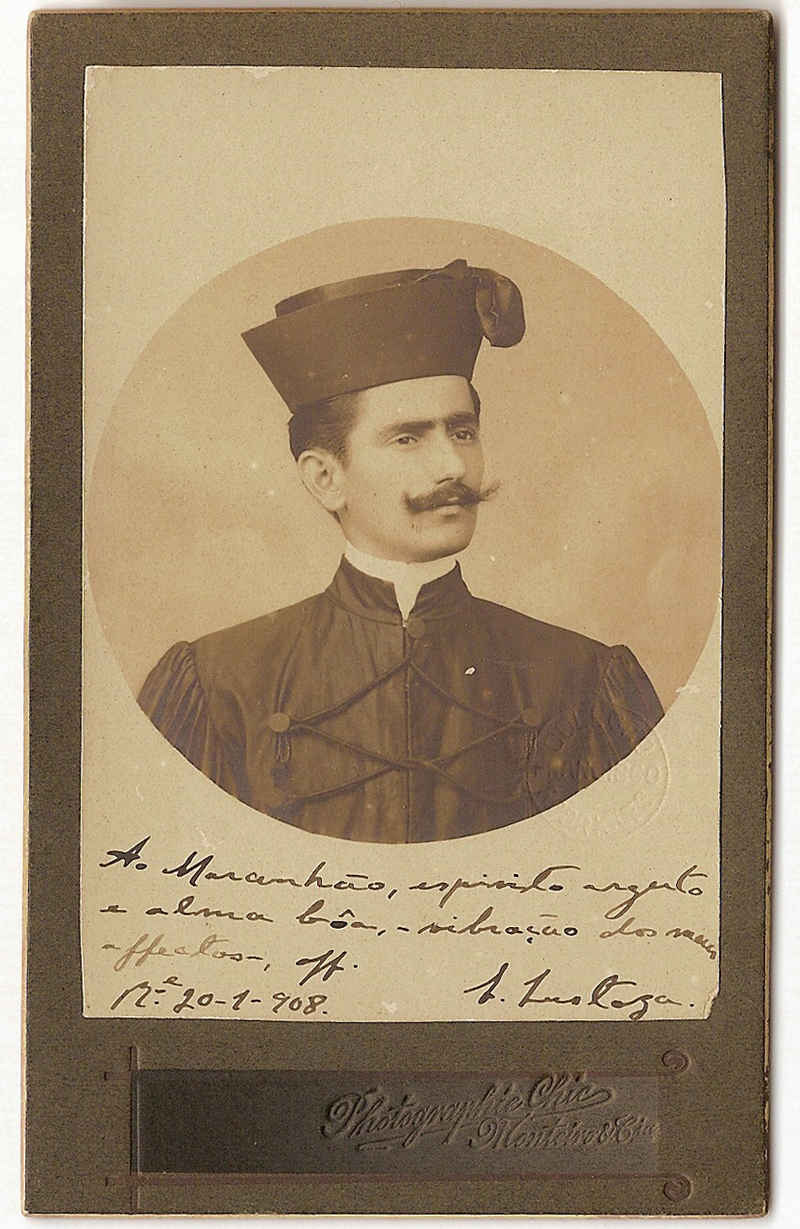 Ao Maranhão, espirito arguto
e alma bôa, - vibração dos meus
affectos -, off.
R.e 20-1-908.
E. Lustoza.
Photographie Chic
Monteiro & Cia